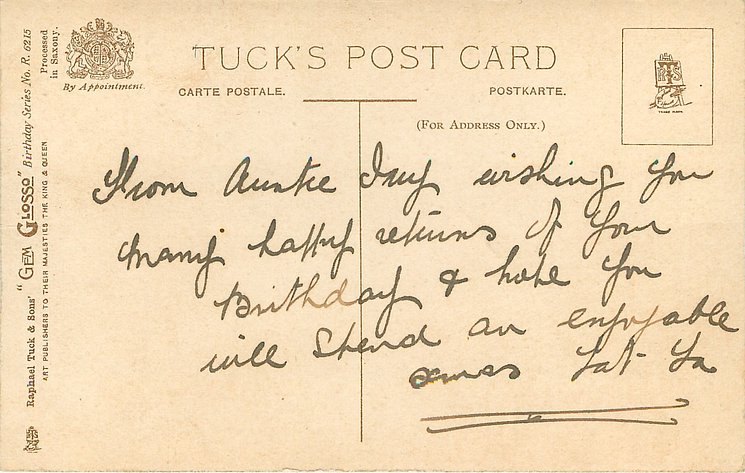 TUCK'S POST CARD
By Appointment.
CARTE POSTALE.
POSTKARTE.
(FOR ADDRESS ONLY.)
TRADE MARK
From Auntie Ivy wishing you
many happy returns of your
Birthday & hope you
will spend an enjoyable
xmas Tat Ta
Raphael Tuck & Sons' "GEM GLOSSO" Birthday Series No. R. 6215
ART PUBLISHERS TO THEIR MAJESTIES THE KING & QUEEN
Processed
in Saxony.